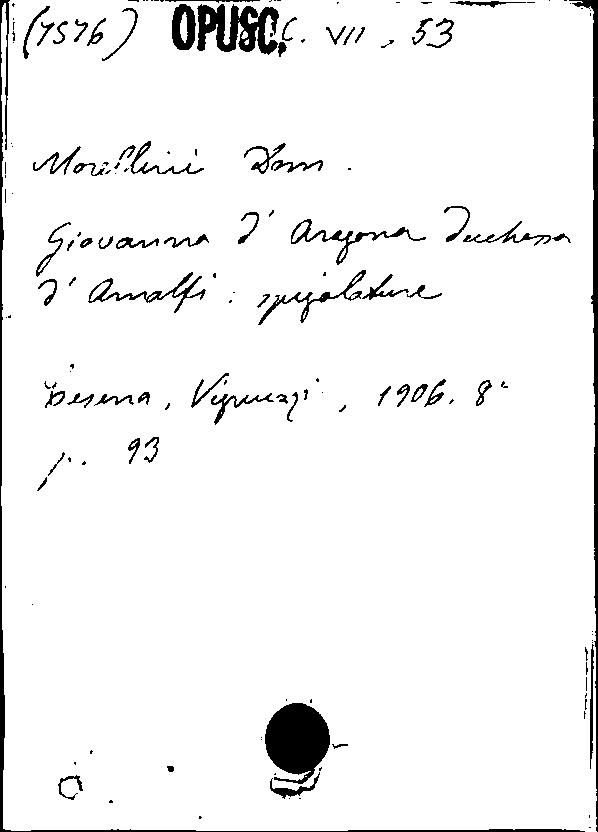 (7576) OPUSC. C. VII, 53
Morellini Dom.
Giovanna d' Aragona Duchessa
d' Amalfi : spigolature
Cesena, Vignuzzi, 1906. 8°
p. 93